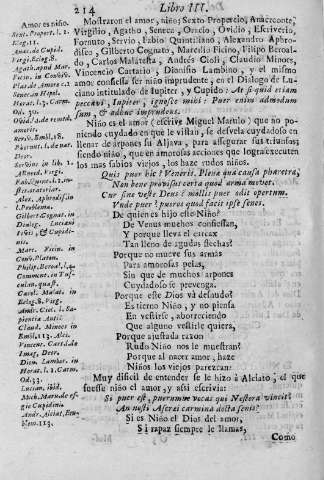 214 Libro III.
Amor es niño.
Sent. Propert. l. 2.
Eleg. 11.
Anac. de Cupid.
Virgil. Eclog. 8.
Agath. apud Mar.
Ficin. in Conviv.
Plat. de Amore c.
Senec. in
Horat. l. 3. Carm.
Od. 30.
Ovid. 2. de remed.
amoris.
Eryc. Emil. 18.
Phornut. l. de nat.
Deor.
Servius in lib. 1.
Æneid. Virg.
Alex. Aphrodis. in
l. Problemat.
Gilbert. Cognat. in
Dialog. Luciani
Iovis, & Cupidinis.
Marc. Ficin. in
Conv. Platon.
Philip. Beroal. l.
Comment. in Tusculan. quæst.
Carol. Malat. in
Eclog. 8. Virg.
Andr. Ciosi. l. Sapientia Antic
Claud. Minoes in
Emil. 113. Alci.
Vincent. Cart. de
Imag. Deor.
Dion. Lambin. in
Horat. l. 1. Carm.
Od. 33.
Lucian. ibid.
Mich. Marul. de effigie Cupidinis
Andr. Alciat, Emblem. 113.
Mostraron el amor, niño; Sexto Propercio, Anacreonte,
Virgilio, Agatho, Seneca, Oracio, Ovidio, Escriverio,
Fornuto, Servio, Fabio Quintiliano, Alexandro Aphrodiseo, Gilberto Cognato, Marcilio Ficino, Filipo Beroaldo, Carlos Malatesta, Andrés Ciosi, Claudio Minoes,
Vincencio Cartario, Dionisio Lambino, y el mismo
amor confiessa ser niño imprudente, en el Dialogo de Luciano intitulado de Iupiter, y Cupido: At si quid etiam
peccavi, Iupiter, ignosce mihi: Puer enim admodum
sum, & adhuc imprudens.
Niño es el amor (escrive Miguel Marulo) que no poniendo cuydado en que le vistan, se desvela cuydadoso en
llenar de arpones su Aljava, para assegurar sus triunfos;
siendo niño, que en amorosas acciones que logra executen
los mas sabios viejos, los haze rudos niños.
Quis puer hic? Veneris. Plenæ quæ causa pharetræ,
Non bene provisâ certa quod arma movet.
Cur sine veste Deus? nullis puer odit opertum.
Vnde puer? pueros quod facit ipse senes.
De quien es hijo este Niño?
De Venus muchos confiessan,
Y porque lleva el carcax
Tan lleno de agudas flechas?
Porque no mueve sus armas
Para amorosas pelas,
Sin que de muchos arpones
Cuydadoso se prevenga.
Porque este Dios vá desnudo?
Es tierno Niño, y no piensa
En vestirse, aborreciendo
Que alguno vestirle quiera,
Porque ajustada razon
Rudo Niño nos le muestran?
Porque al nacer amor, haze
Niños los viejos parezcan:
Muy dificil de entender se le hizo á Alciato, el que
fuesse niño el amor, y assi escrivia:
Si puer est, puerumne vocas qui Nestora vincit?
An nosti Ascræi carmina docta senis?
Si es Niño el Dios del amor,
Si rapaz siempre le llamas,
Como